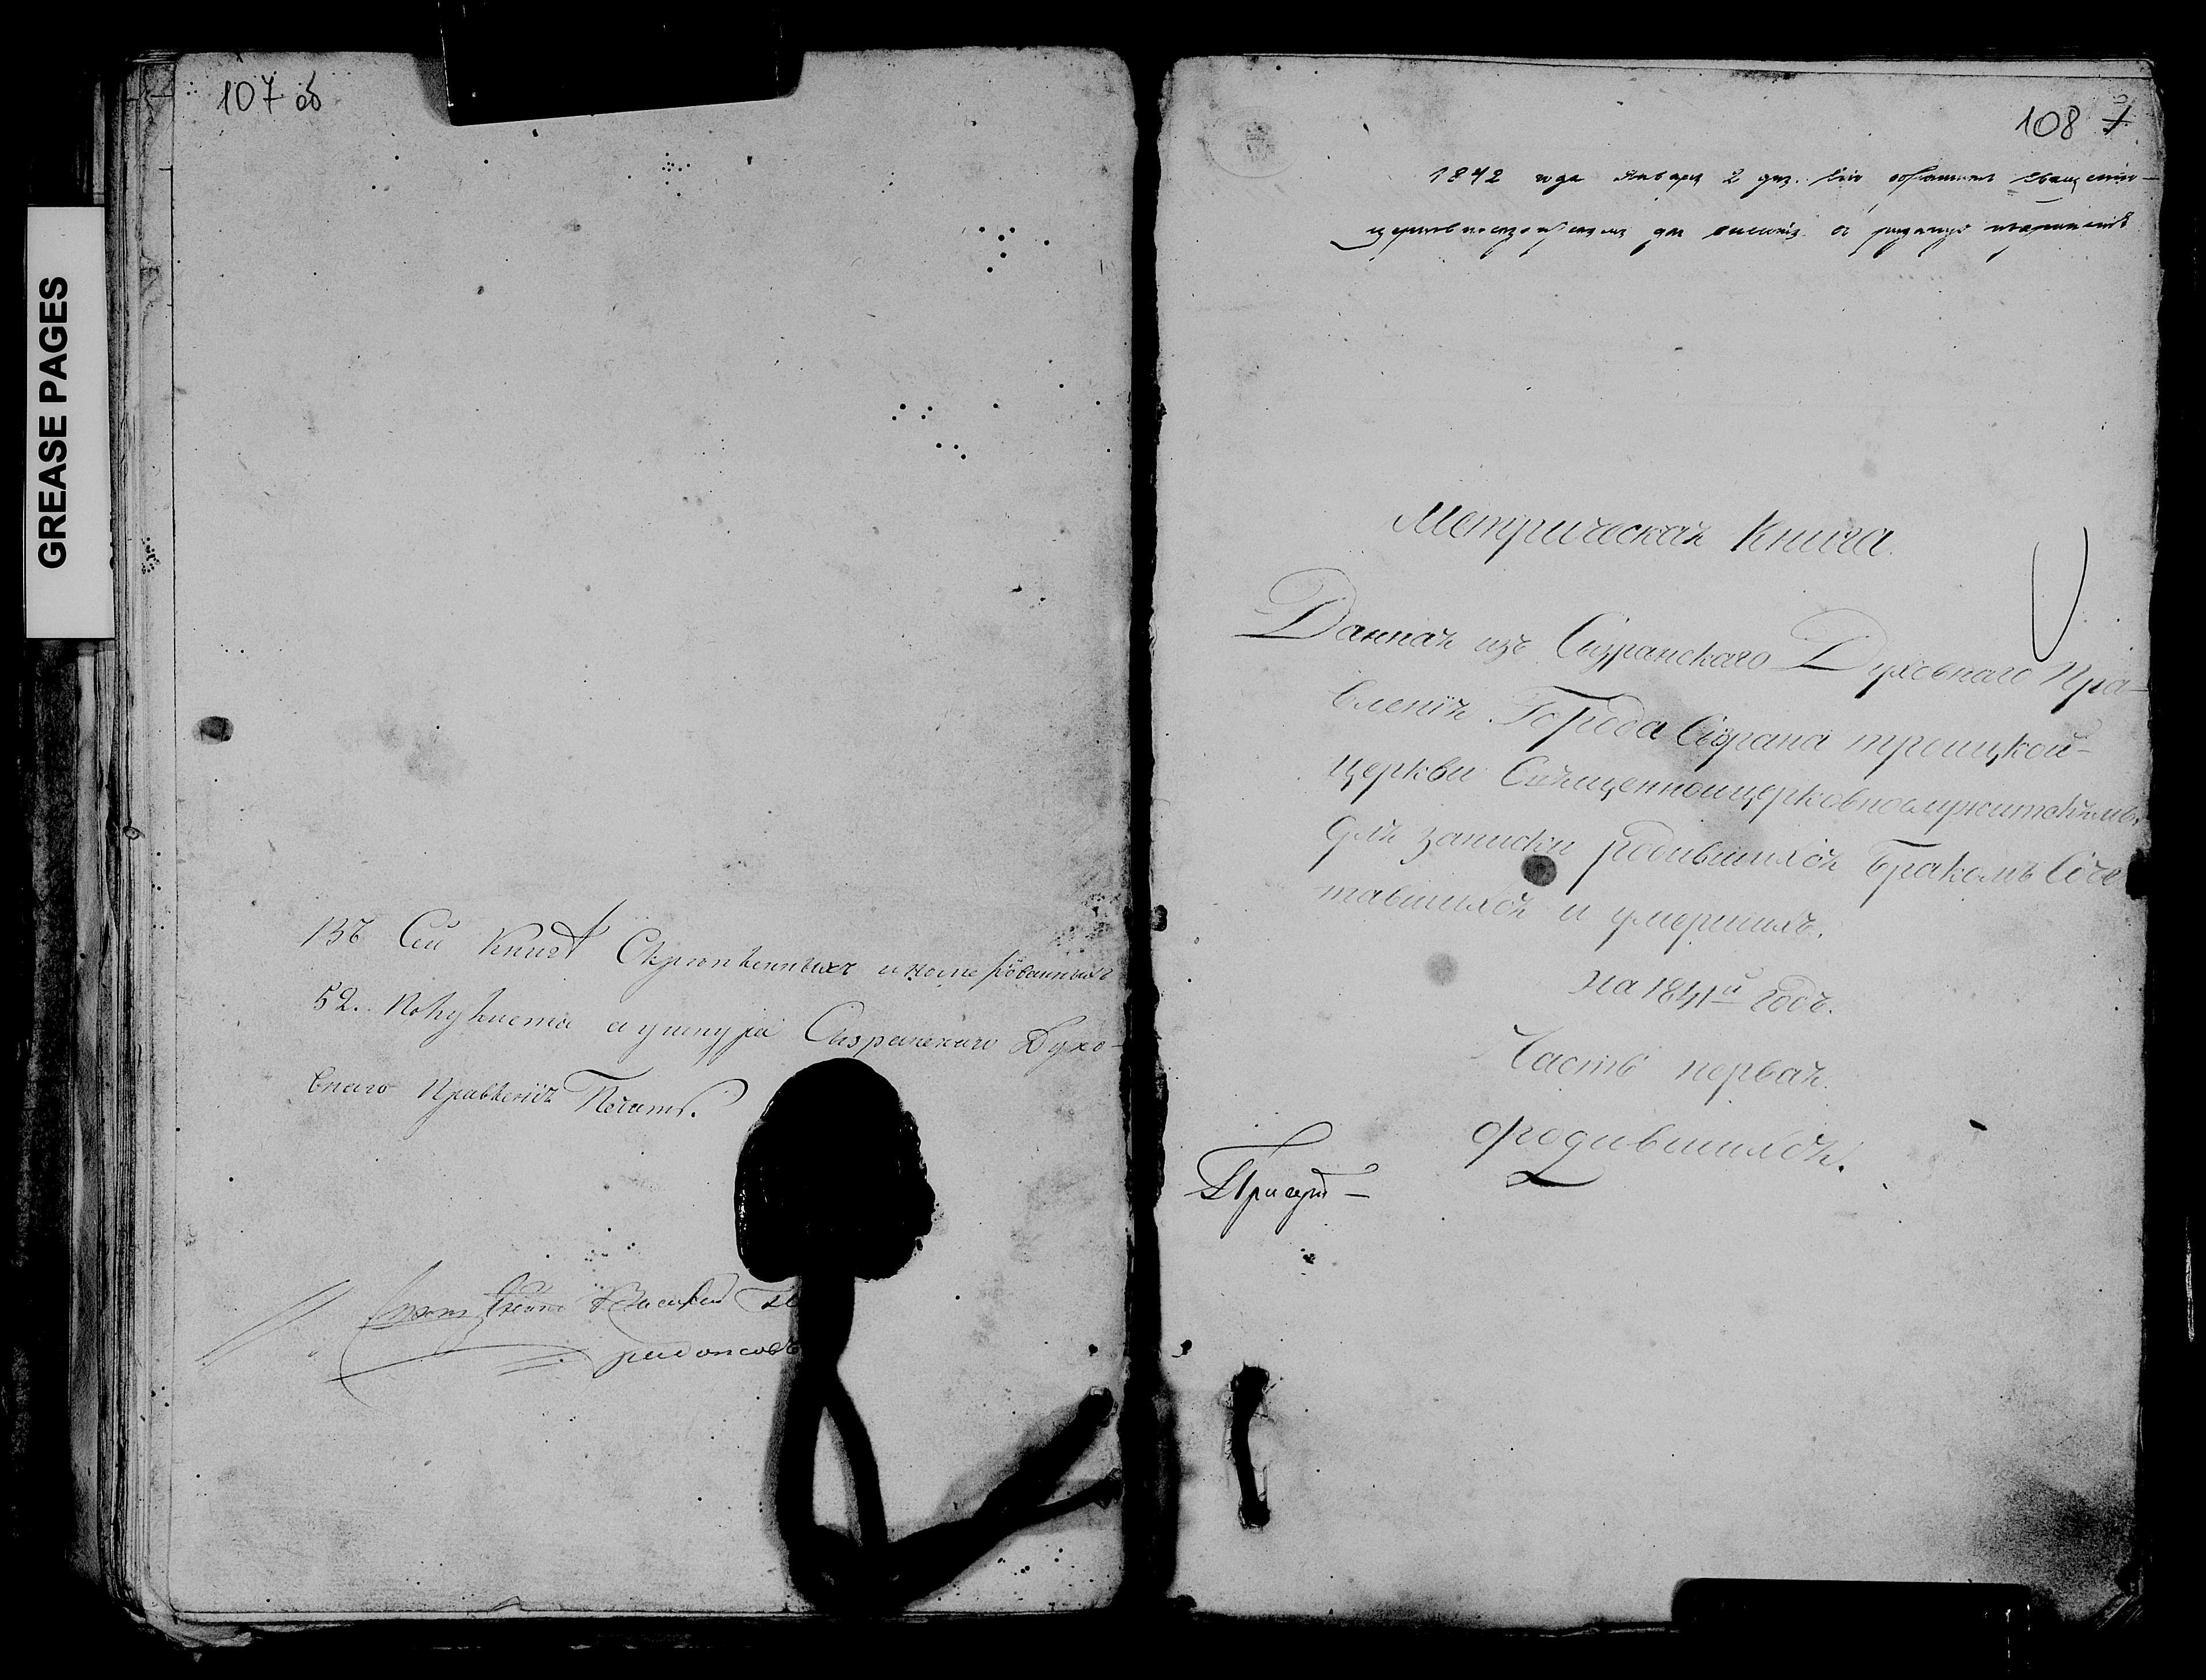 GREASE PAGES
107 об
Въ сей книгѣ скрѣпленныхъ и номерованныхъ
52. полулиста а у шнура Сызранскаго Духо-
внаго Правленія Печать.
108
1842 года Января 2 дня.
Метрическая Книга
Данная изъ Сызранскаго Духовнаго Пра-
вленія Города Сызрана троицкой
церкви Священноцерковнослужителямъ
для записки родившихся бракомъ Соче
тавшихся и умершихъ.
на 1841й годъ.
Часть первая.
о родившихся.
Присут-